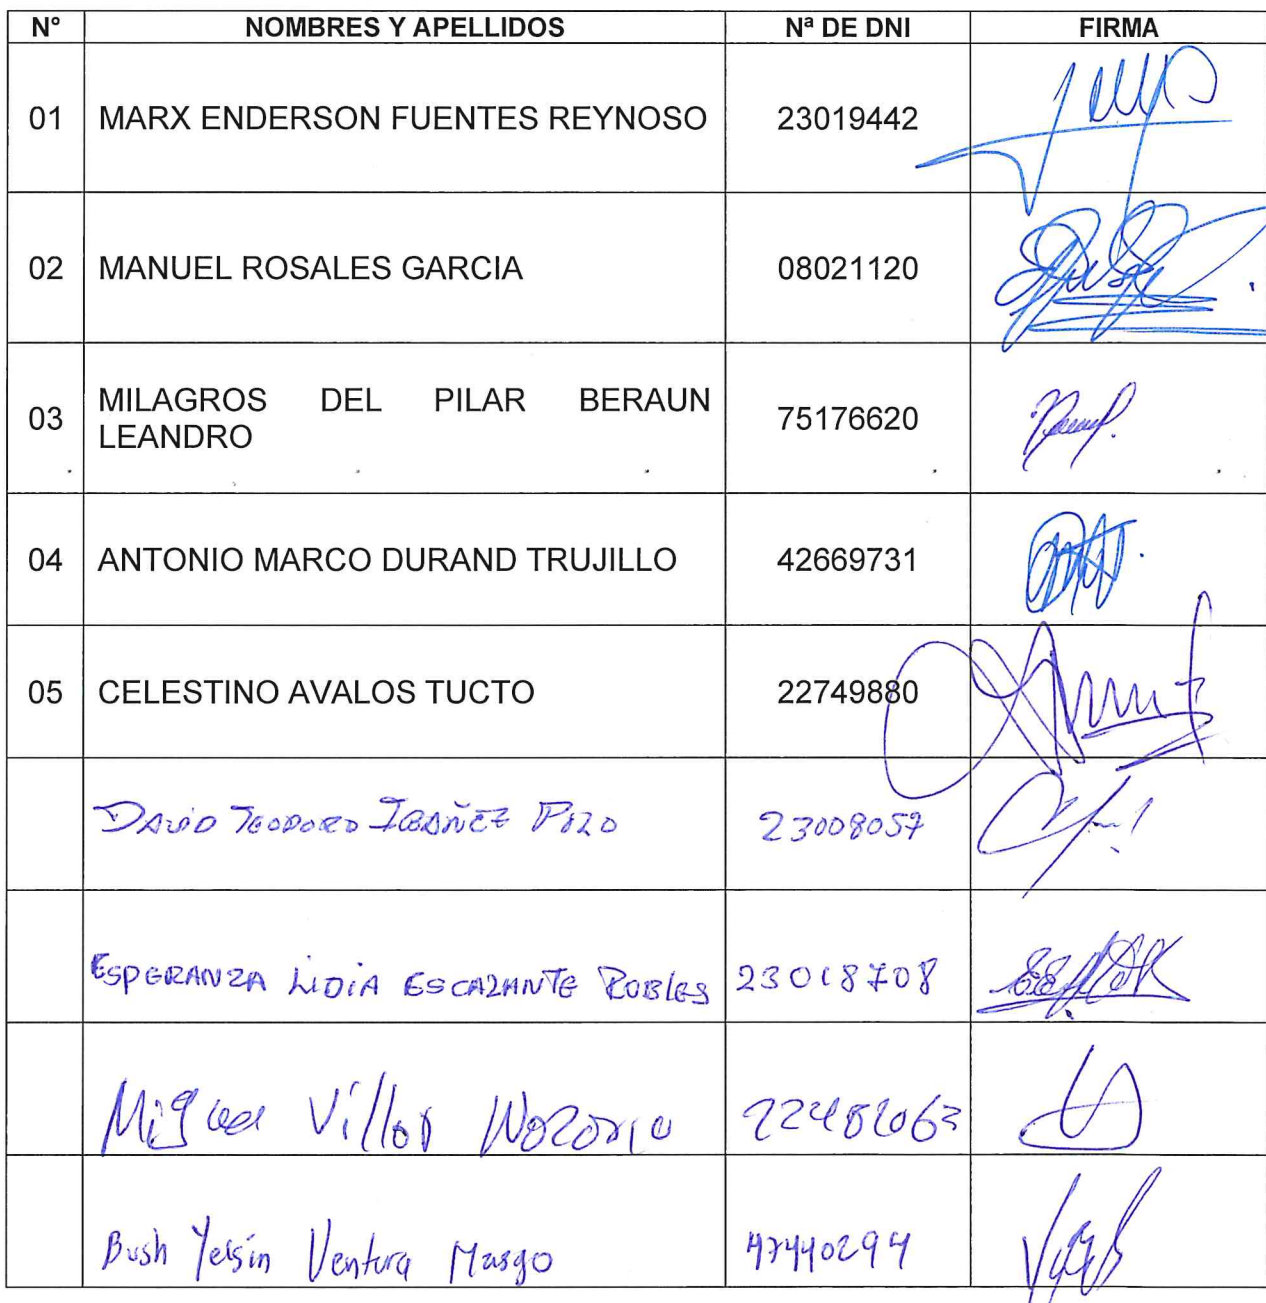 N° NOMBRES Y APELLIDOS Nª DE DNI FIRMA
01 MARX ENDERSON FUENTES REYNOSO 23019442
02 MANUEL ROSALES GARCIA 08021120
03 MILAGROS DEL PILAR BERAUN LEANDRO 75176620
04 ANTONIO MARCO DURAND TRUJILLO 42669731
05 CELESTINO AVALOS TUCTO 22749880
DAVID TEODORO IBAÑEZ 23008057
ESPERANZA LIDIA ESCALANTE ROBLES 23018708
Miguel Villar
Bush Yelsin Ventura Masgo 47440294